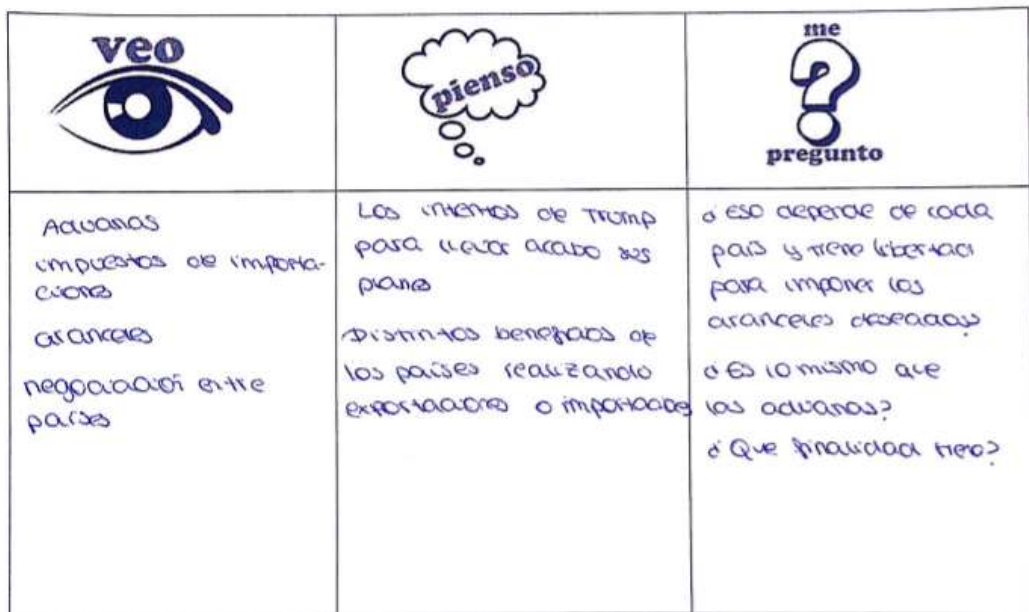 veo
pienso
me
pregunto
Aduanas
impuestos de importa-
ciones
aranceles
negociación entre
países
Los intentos de Trump
para llevar acabo sus
planes
Distintos beneficios de
los países realizando
exportaciones o importaciones
¿Eso depende de cada
país y tiene libertad
para imponer los
aranceles deseados?
¿Es lo mismo que
las aduanas?
¿Que finalidad tiene?